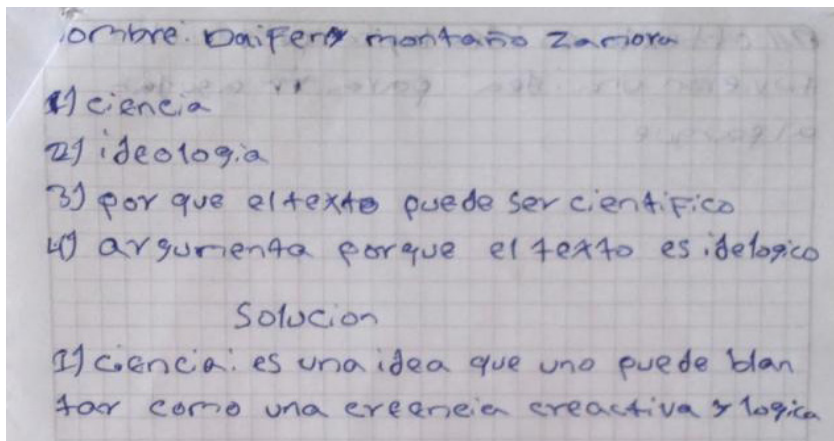 ombre: Daifery montaño Zamora
1) ciencia
2) ideologia
3) por que el texto puede ser cientifico
4) argumenta porque el texto es idelogico
Solucion
1) ciencia: es una idea que uno puede blan
tar como una creencia creactiva y logica